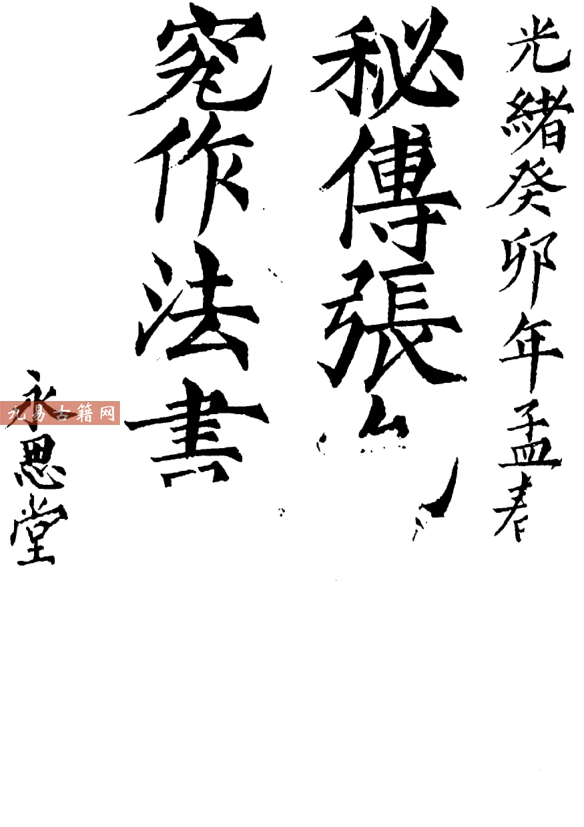 光緒癸卯年孟春
秘傳張
作法書
永思堂
九易古籍网